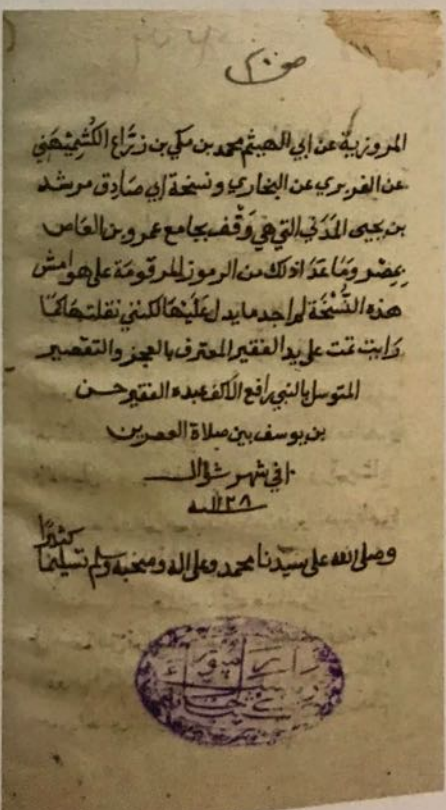 المروزية عن ابي الهيثم محمد بن مكي بن زراع الكشميهني
عن الفربري عن البخاري ونسخة ابي صادق مرشد
بن يحيى المدني التي هي وقف بجامع عمرو بن العاص
بمصر وما عدا ذلك من الرموز المرقومة على هوامش
هذه النسخة لم اجد ما يدل عليها لكنني نقلتها كما
رايت تمت على يد الفقير المعترف بالعجز والتقصير
المتوسل بالنبي رافع الاكف عبده الفقير حسن
بن يوسف بين صلاة العصرين
في شهر شوال
وصلى الله على سيدنا محمد وعلى اله وصحبه وسلم تسليما كثيرا